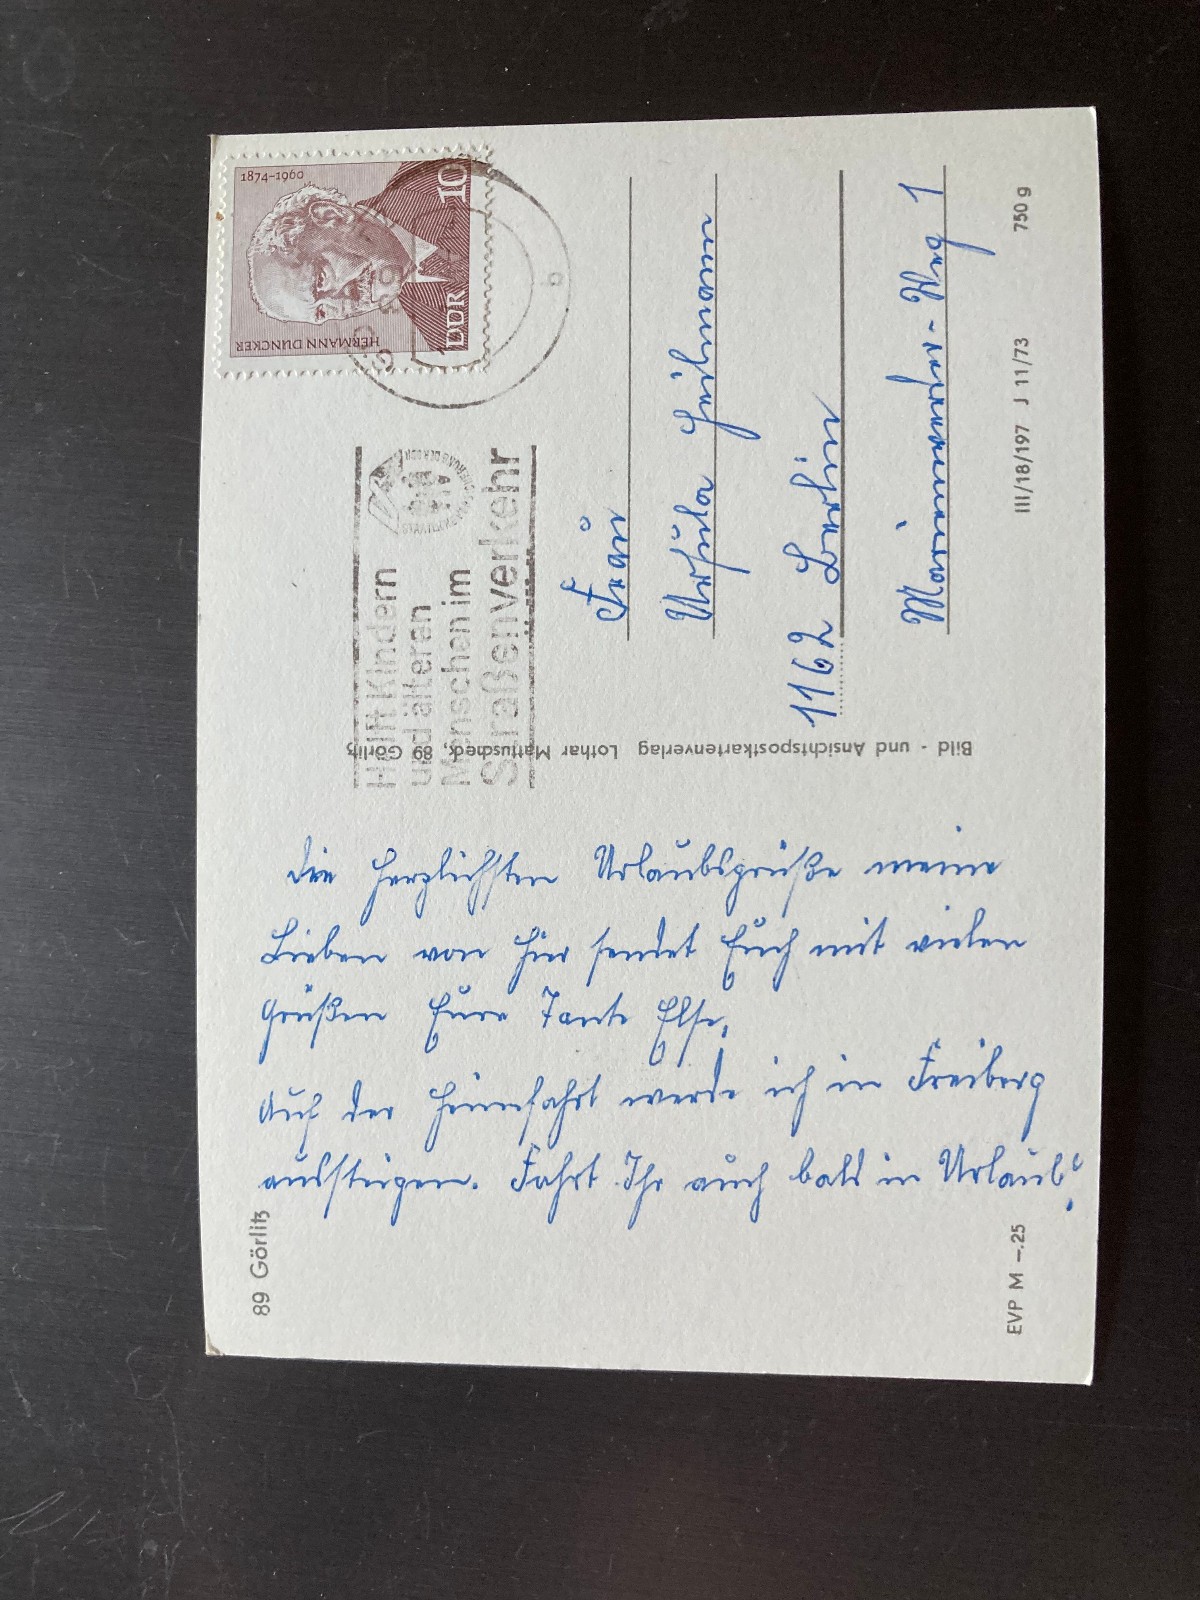 89 Görlitz
Die herzlichsten Urlaubsgrüße meine
Lieben von hier sendet Euch mit vielen
Grüßen Eure Tante Else.
Auf der Heimfahrt werde ich in Freiberg
aussteigen. Fahrt Ihr auch bald in Urlaub?
EVP M –.25
Bild - und Ansichtspostkartenverlag Lothar Mattuscheck, 89 Görlitz
Helft Kindern
und älteren
Menschen im
Straßenverkehr
1874–1960
HERMANN DUNCKER
DDR 10
Frau
Ursula
1162 Berlin
Weg 1
III/18/197 J 11/73
750 g